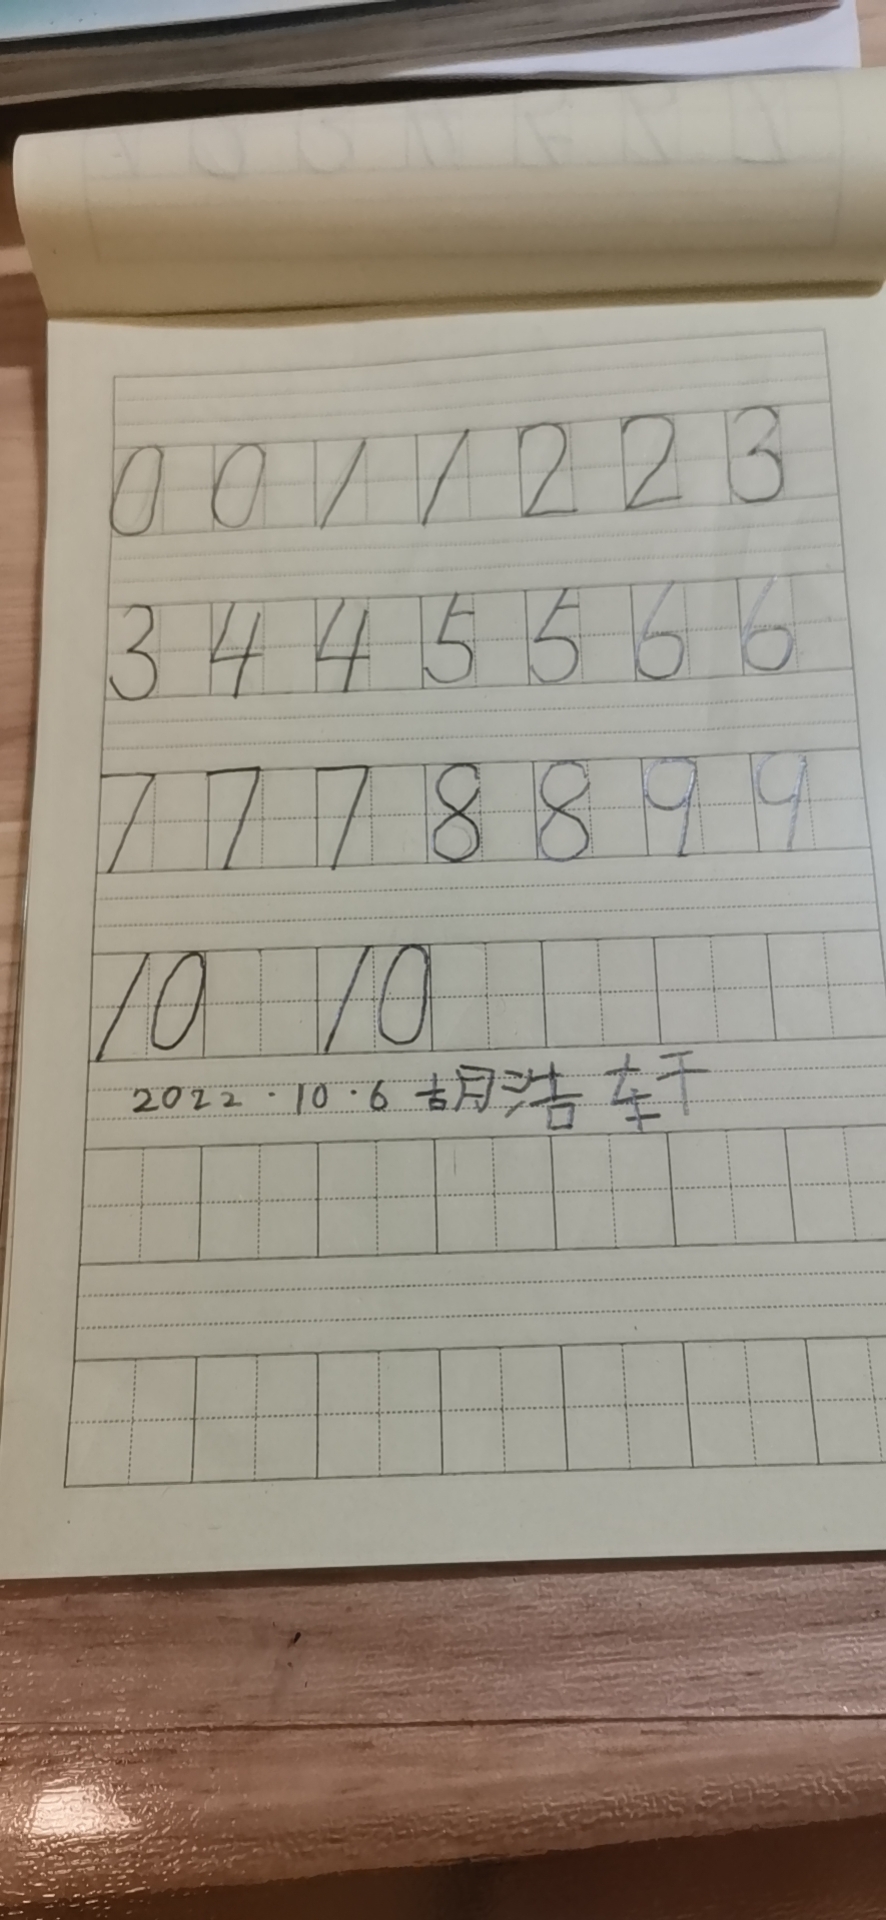 0 0 1 1 2 2 3
3 4 4 5 5 6 6
7 7 7 8 8 9 9
10 10
2022.10.6 胡浩轩